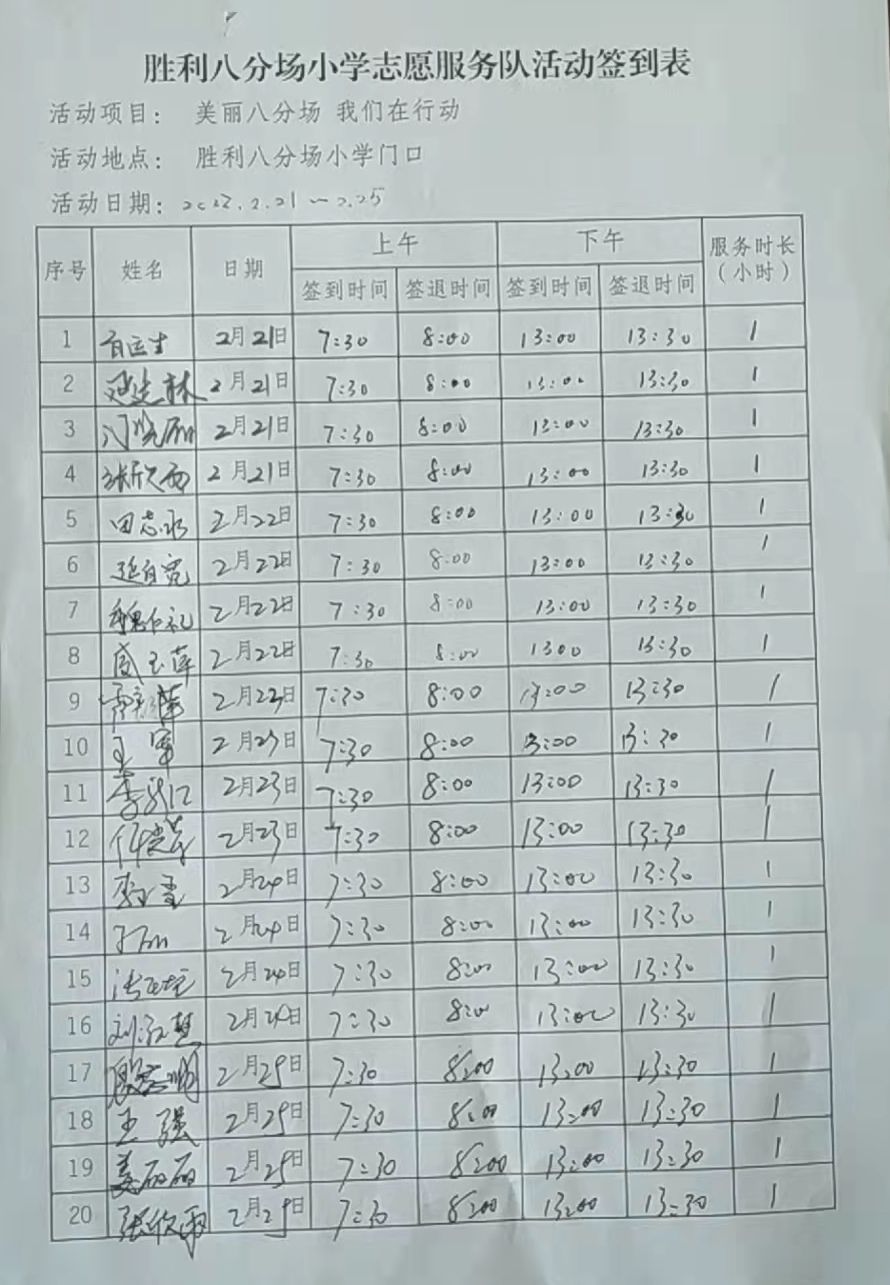 胜利八分场小学志愿服务队活动签到表
活动项目： 美丽八分场 我们在行动
活动地点： 胜利八分场小学门口
活动日期：2022.2.21～2.25
序号 姓名 日期 上午 下午 服务时长（小时）
签到时间 签退时间 签到时间 签退时间
1 2月21日 7:30 8:00 13:00 13:30 1
2 2月21日 7:30 8:00 13:00 13:30 1
3 2月21日 7:30 8:00 13:00 13:30 1
4 张欣雨 2月21日 7:30 8:00 13:00 13:30 1
5 田志永 2月22日 7:30 8:00 13:00 13:30 1
6 2月22日 7:30 8:00 13:00 13:30 1
7 魏仁礼 2月22日 7:30 8:00 13:00 13:30 1
8 戚玉萍 2月22日 7:30 8:00 1300 13:30 1
9 2月23日 7:30 8:00 13:00 13:30 1
10 王军 2月23日 7:30 8:00 13:00 13:30 1
11 2月23日 7:30 8:00 13:00 13:30 1
12 2月23日 7:30 8:00 13:00 13:30 1
13 2月24日 7:30 8:00 13:00 13:30 1
14 2月24日 7:30 8:00 13:00 13:30 1
15 2月24日 7:30 8:00 13:00 13:30 1
16 刘淑慧 2月24日 7:30 8:00 13:00 13:30 1
17 殷志明 2月25日 7:30 8:00 13:00 13:30 1
18 王强 2月25日 7:30 8:00 13:00 13:30 1
19 姜丽丽 2月25日 7:30 8:00 13:00 13:30 1
20 张欣雨 2月25日 7:30 8:00 13:00 13:30 1